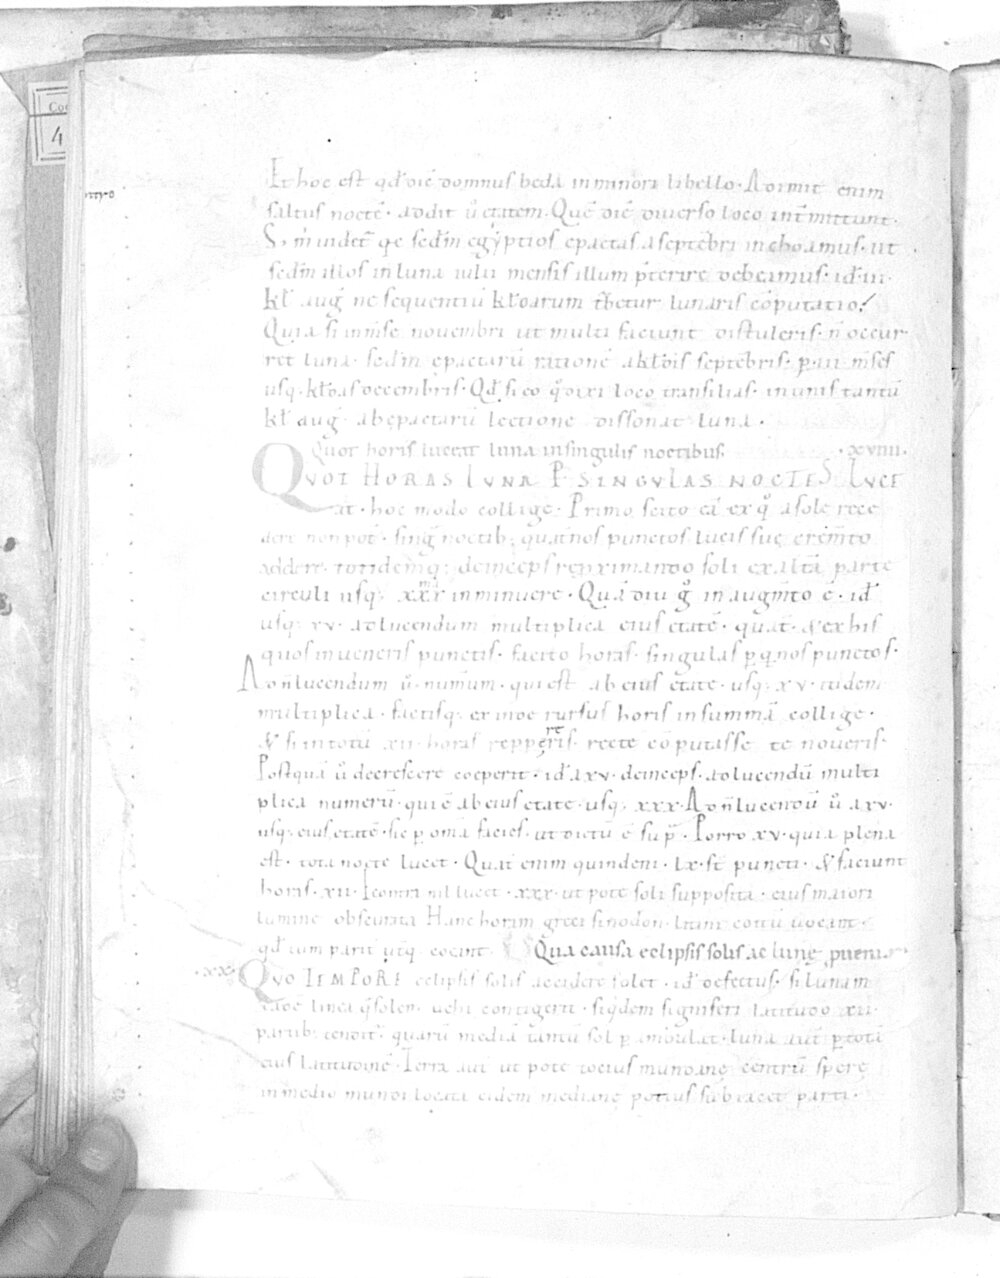 Et hoc est qđ dic̄ domnus beda in minori libello. Adimit enim
saltus noctē. addit ū etatem. Quē dic̄ diverso loco int̄mittunt.
S; m̄ videt̄ qe sedm̄ egyptios epactas a septēbri inchoamus. ut
sedm̄ illos in luna iulii mensis illum p̄terire debeamus. id. iii.
kl̄ auḡ ne sequentiū kl̄darum t̄betur lunaris cōputatio.
Quia si in m̄se novembri ut multi faciunt distuleris. n̄ occur
ret luna. sedm̄ epactarū rationē a kl̄dis septēbris. p. iii. m̄ses
usq. kl̄das decembris. Qđ si eo q̊ dixi loco transilias. in unis tantū
kl̄ auḡ ab epactarū lectione dissonat luna.
Quot horis luceat luna in singulis noctibus. .xviiii.
QUOT HORAS LUNA P SINGULAS NOCTES LUCE
at. hoc modo collige. Primo scito eā ex q̊ a sole rece
dere non pot̄. sing̅ noctib; quat̄nos punctos lucis sue crem̄to
addere. totidemq; deinceps reximando soli ex alt̄a parte
circuli usq; xxx in minuere. Quā diu g̊ in augm̄to ē. id
usq; xv. ad lucendum multiplica eius etatē. quat̄. & ex his
quos inveneris punctis. facito horas. singulas p̱ q̱nos punctos.
Ad n̄ lucendum ū. num̄um. qui est ab eius etate. usq; xv. itidem
multiplica. factisq; ex inde rursus horis in summā collige.
& si in totū xii. horas reppereris. recte cōputasse te noveris.
Postquā ū decrescere coeperit. id̄ a xv. deinceps. ad lucendū multi
plica numerū. qui ē ab eius etate. usq; xxx. Ad n̄ lucendū ū a xv.
usq; eius etatē. sic p̱ om̄a facies. ut dictū ē sup̄. Porro xv. quia plena
est. tota nocte lucet. Quat̄ enim quindeni. lx. st̄ puncti. & faciunt
horas. xii. Econtra nil lucet. xxx. ut pote soli supposita. eius maiori
lumine obscurata Hanc horam greci sinodon. latini coitū vocant.
qđ tum parit̄ ut̄q; coeant. Qua causa eclipsis solis ac lunę
.xx. QUO TEMPORE eclipsis solis accidere solet. id̄ defectus. si lunam
eadē linea q̄ solem. vehi contigerit. siq̇dem signiferi latitudo xii.
partib; tendit̄. quarū mediā tantū sol p̱ambulat. luna aut̄ p̱ totā
eius latitudinē. Terra aut̄ ut pote tocius mundanę centrū sperę
in medio mundi locata eidem medianę potius subiacet parti.